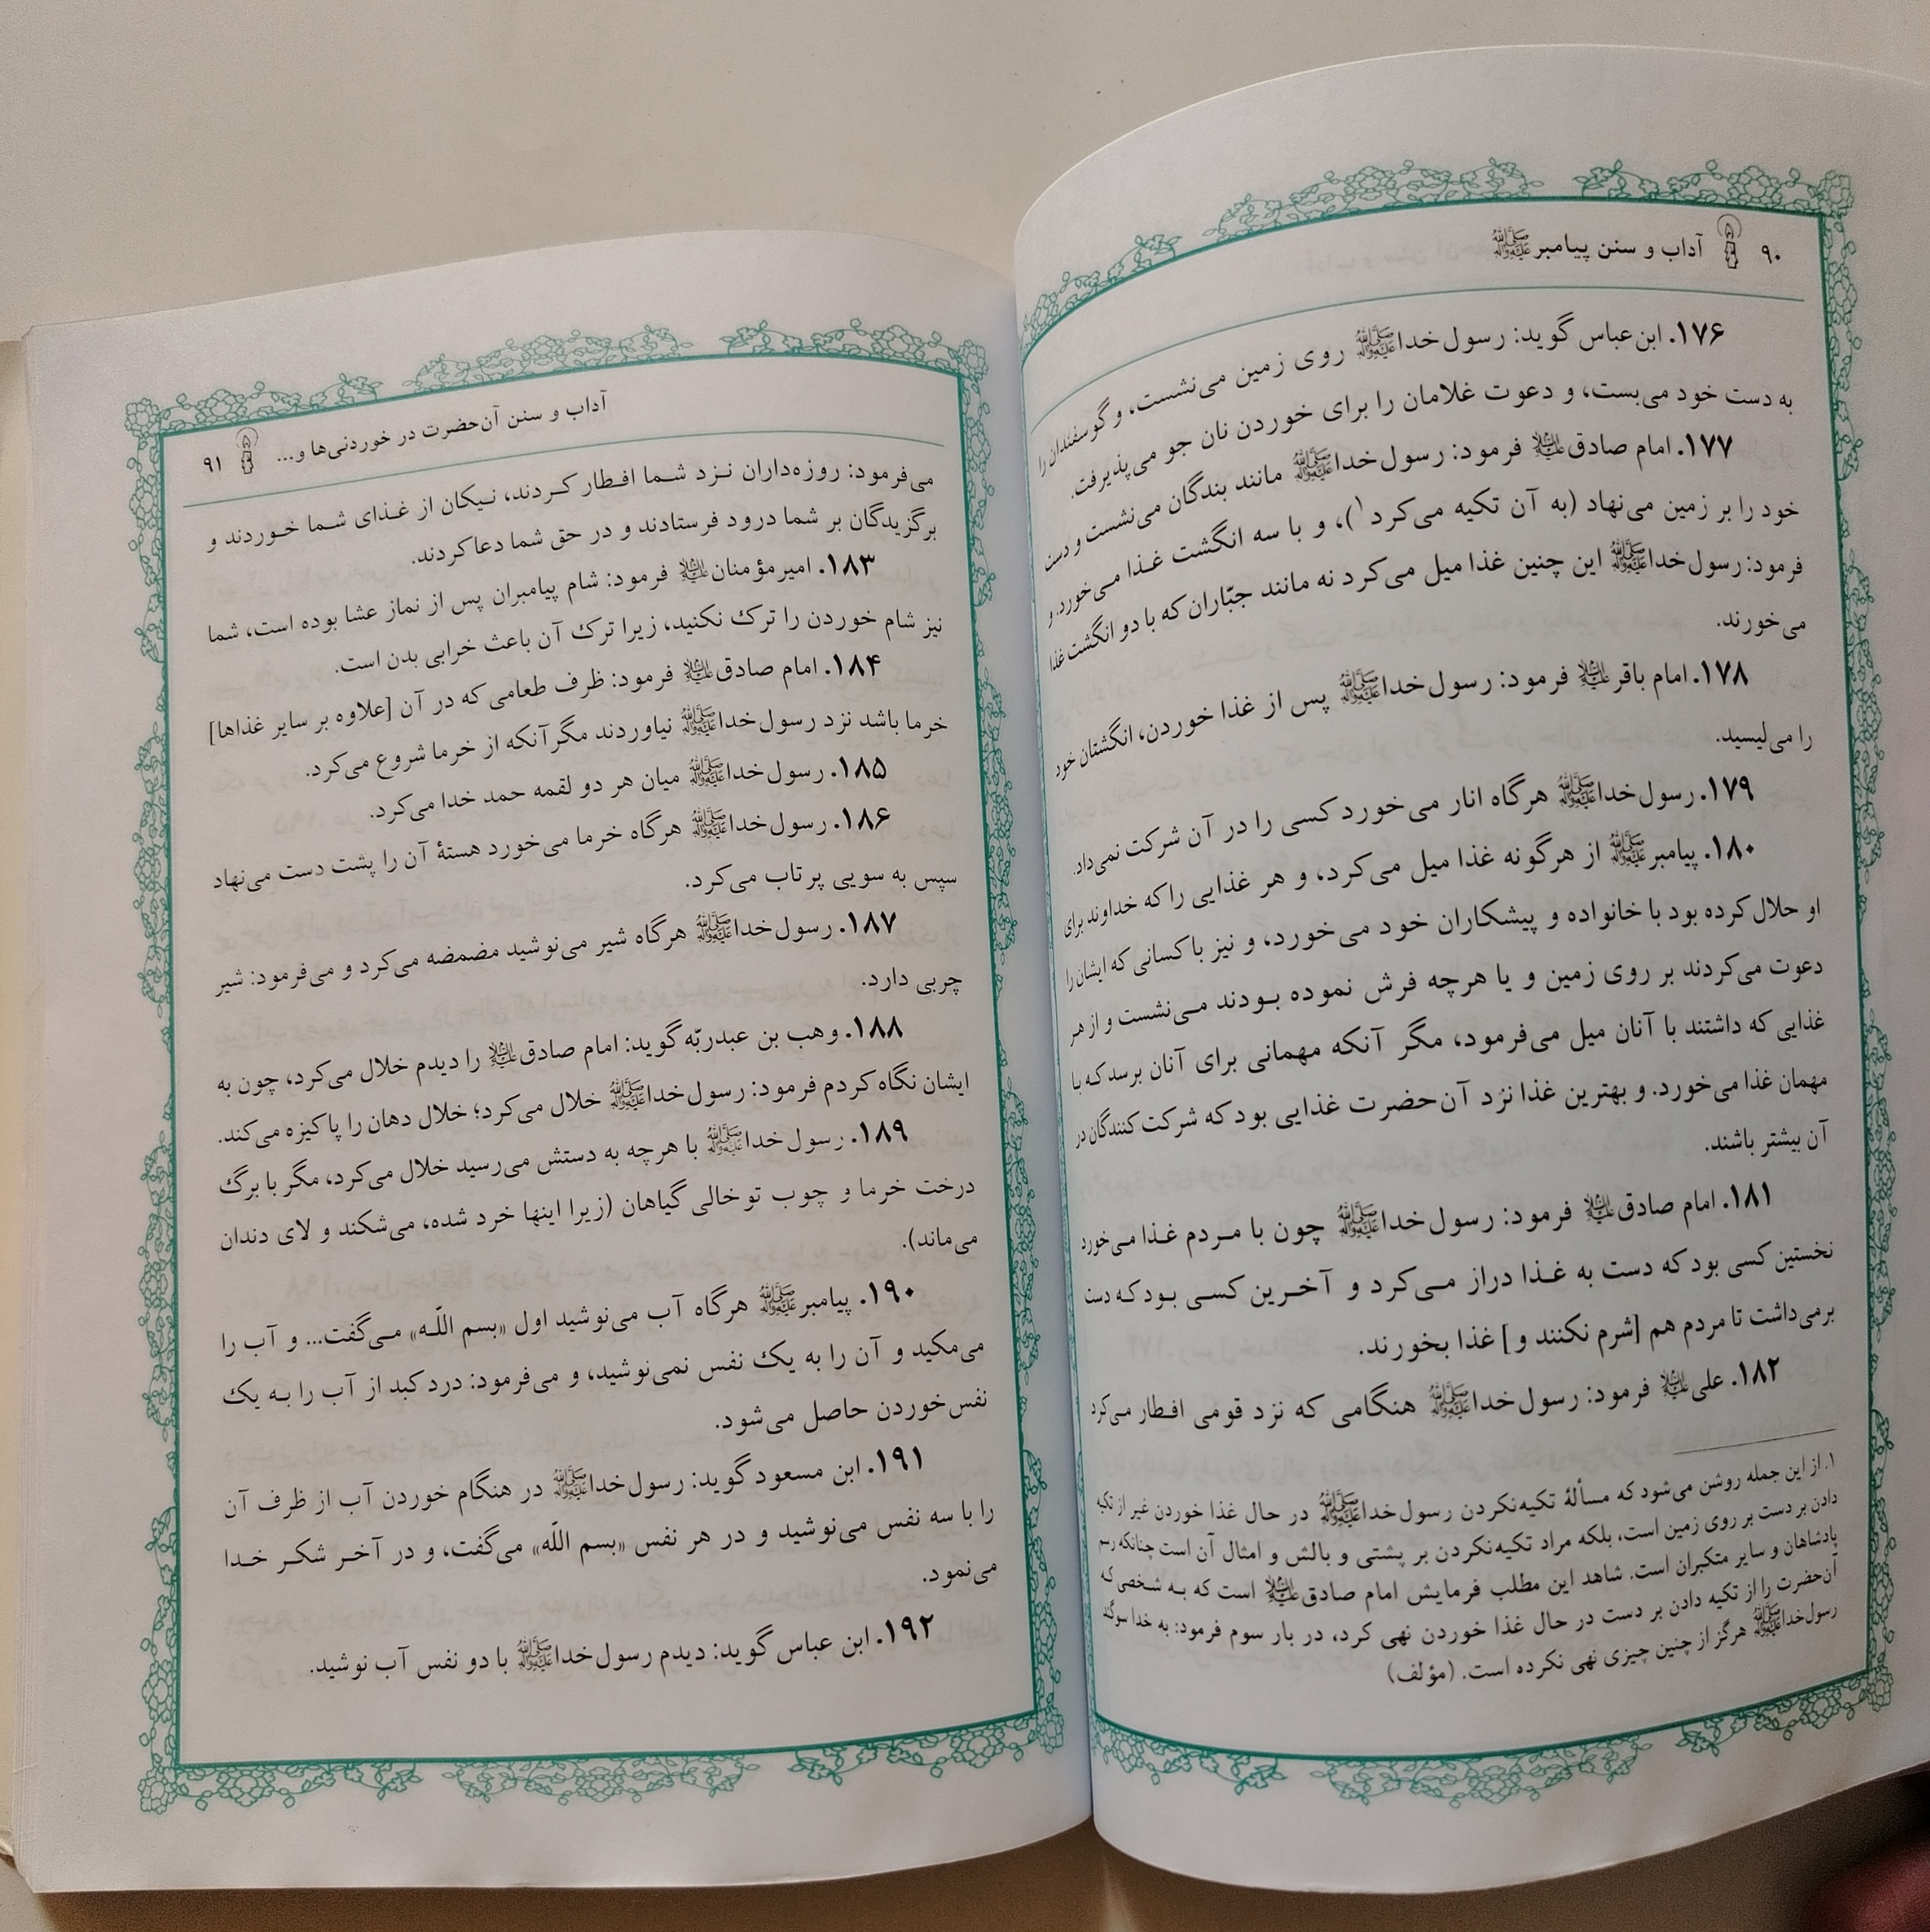 ۹۰ آداب و سنن پیامبرﷺ
۱۷۶. ابن‌عباس گوید: رسول‌خداﷺ روی زمین می‌نشست، و گوسفندان را
به دست خود می‌بست، و دعوت غلامان را برای خوردن نان جو می‌پذیرفت.
۱۷۷. امام صادق‌علیه‌السلام فرمود: رسول‌خداﷺ مانند بندگان می‌نشست و دست
خود را بر زمین می‌نهاد (به آن تکیه می‌کرد۱)، و با سه انگشت غذا می‌خورد. و
فرمود: رسول‌خداﷺ این چنین غذا میل می‌کرد نه مانند جبّاران که با دو انگشت غذا
می‌خورند.
۱۷۸. امام باقر‌علیه‌السلام فرمود: رسول‌خداﷺ پس از غذا خوردن، انگشتان خود
را می‌لیسید.
۱۷۹. رسول‌خداﷺ هرگاه انار می‌خورد کسی را در آن شرکت نمی‌داد.
۱۸۰. پیامبرﷺ از هرگونه غذا میل می‌کرد، و هر غذایی را که خداوند برای
او حلال کرده بود با خانواده و پیشکاران خود می‌خورد، و نیز با کسانی که ایشان را
دعوت می‌کردند بر روی زمین و یا هرچه فرش نموده بودند می‌نشست و از هر
غذایی که داشتند با آنان میل می‌فرمود، مگر آنکه مهمانی برای آنان برسد که با
مهمان غذا می‌خورد. و بهترین غذا نزد آن‌حضرت غذایی بود که شرکت‌کنندگان در
آن بیشتر باشند.
۱۸۱. امام صادق‌علیه‌السلام فرمود: رسول‌خداﷺ چون با مردم غذا می‌خورد
نخستین کسی بود که دست به غذا دراز می‌کرد و آخرین کسی بود که دست
برمی‌داشت تا مردم هم [شرم نکنند و] غذا بخورند.
۱۸۲. علی‌علیه‌السلام فرمود: رسول‌خداﷺ هنگامی که نزد قومی افطار می‌کرد
۱. از این جمله روشن می‌شود که مسألهٔ تکیه‌نکردن رسول‌خداﷺ در حال غذا خوردن غیر از تکیه
دادن بر دست بر روی زمین است، بلکه مراد تکیه‌نکردن بر پشتی و بالش و امثال آن است چنانکه رسم
پادشاهان و سایر متکبران است. شاهد این مطلب فرمایش امام صادق‌علیه‌السلام است که به شخصی که
آن‌حضرت را از تکیه دادن بر دست در حال غذا خوردن نهی کرد، در بار سوم فرمود: به خدا سوگند
رسول‌خداﷺ هرگز از چنین چیزی نهی نکرده است. (مؤلف)
آداب و سنن آن‌حضرت در خوردنی‌ها و... ۹۱
می‌فرمود: روزه‌داران نزد شما افطار کردند، نیکان از غذای شما خوردند و
برگزیدگان بر شما درود فرستادند و در حق شما دعا کردند.
۱۸۳. امیرمؤمنان‌علیه‌السلام فرمود: شام پیامبران پس از نماز عشا بوده است، شما
نیز شام خوردن را ترک نکنید، زیرا ترک آن باعث خرابی بدن است.
۱۸۴. امام صادق‌علیه‌السلام فرمود: ظرف طعامی که در آن [علاوه بر سایر غذاها]
خرما باشد نزد رسول‌خداﷺ نیاوردند مگر آنکه از خرما شروع می‌کرد.
۱۸۵. رسول‌خداﷺ میان هر دو لقمه حمد خدا می‌کرد.
۱۸۶. رسول‌خداﷺ هرگاه خرما می‌خورد هستهٔ آن را پشت دست می‌نهاد
سپس به سویی پرتاب می‌کرد.
۱۸۷. رسول‌خداﷺ هرگاه شیر می‌نوشید مضمضه می‌کرد و می‌فرمود: شیر
چربی دارد.
۱۸۸. وهب بن عبدربّه گوید: امام صادق‌علیه‌السلام را دیدم خلال می‌کرد، چون به
ایشان نگاه کردم فرمود: رسول‌خداﷺ خلال می‌کرد؛ خلال دهان را پاکیزه می‌کند.
۱۸۹. رسول‌خداﷺ با هرچه به دستش می‌رسید خلال می‌کرد، مگر با برگ
درخت خرما و چوب توخالی گیاهان (زیرا اینها خرد شده، می‌شکند و لای دندان
می‌ماند).
۱۹۰. پیامبرﷺ هرگاه آب می‌نوشید اول «بسم اللّه» می‌گفت... و آب را
می‌مکید و آن را به یک نفس نمی‌نوشید، و می‌فرمود: درد کبد از آب را به یک
نفس‌خوردن حاصل می‌شود.
۱۹۱. ابن مسعود گوید: رسول‌خداﷺ در هنگام خوردن آب از ظرف آن
را با سه نفس می‌نوشید و در هر نفس «بسم اللّه» می‌گفت، و در آخر شکر خدا
می‌نمود.
۱۹۲. ابن عباس گوید: دیدم رسول‌خداﷺ با دو نفس آب نوشید.